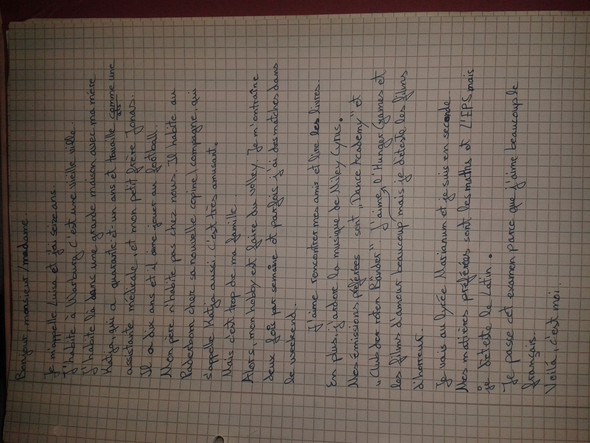 Bonjour, monsieur / madame
Je m'appelle Luna et j'ai seize ans.
J'habite à Warburg. C'est une vieille ville.
J'habite là dans une grande maison avec ma mère
Katja, qui a quarante et un ans et travaille comme une
assistante médicale, et mon petit frère Jonas.
Il a dix ans et il aime jouer au football.
Mon père n'habite pas chez nous. Il habite au
Paderborn chez sa nouvelle copine / compagne, qui
s'appelle Katja aussi. C'est très amusant.
Mais c'est trop de ma famille.
Alors, mon hobby est faire du volley. Je m'entraîne
deux fois par semaine et parfois j'ai des matches dans
le weekend.
J'aime rencontrer mes amis et lire les livres.
En plus, j'adore la musique de Miley Cyrus.
Mes émissions préférées sont "Dance Academy" et
"Club der roten Bänder". J'aime "Hunger Games" et
les films d'amour beaucoup mais je déteste les films
d'horreur.
Je vais au lycée Marianum et je suis en seconde.
Mes matières préférées sont les maths et L'EPS mais
je déteste le Latin.
Je passe cet examen parce que j'aime beaucoup le
français.
Voilà, c'est moi.